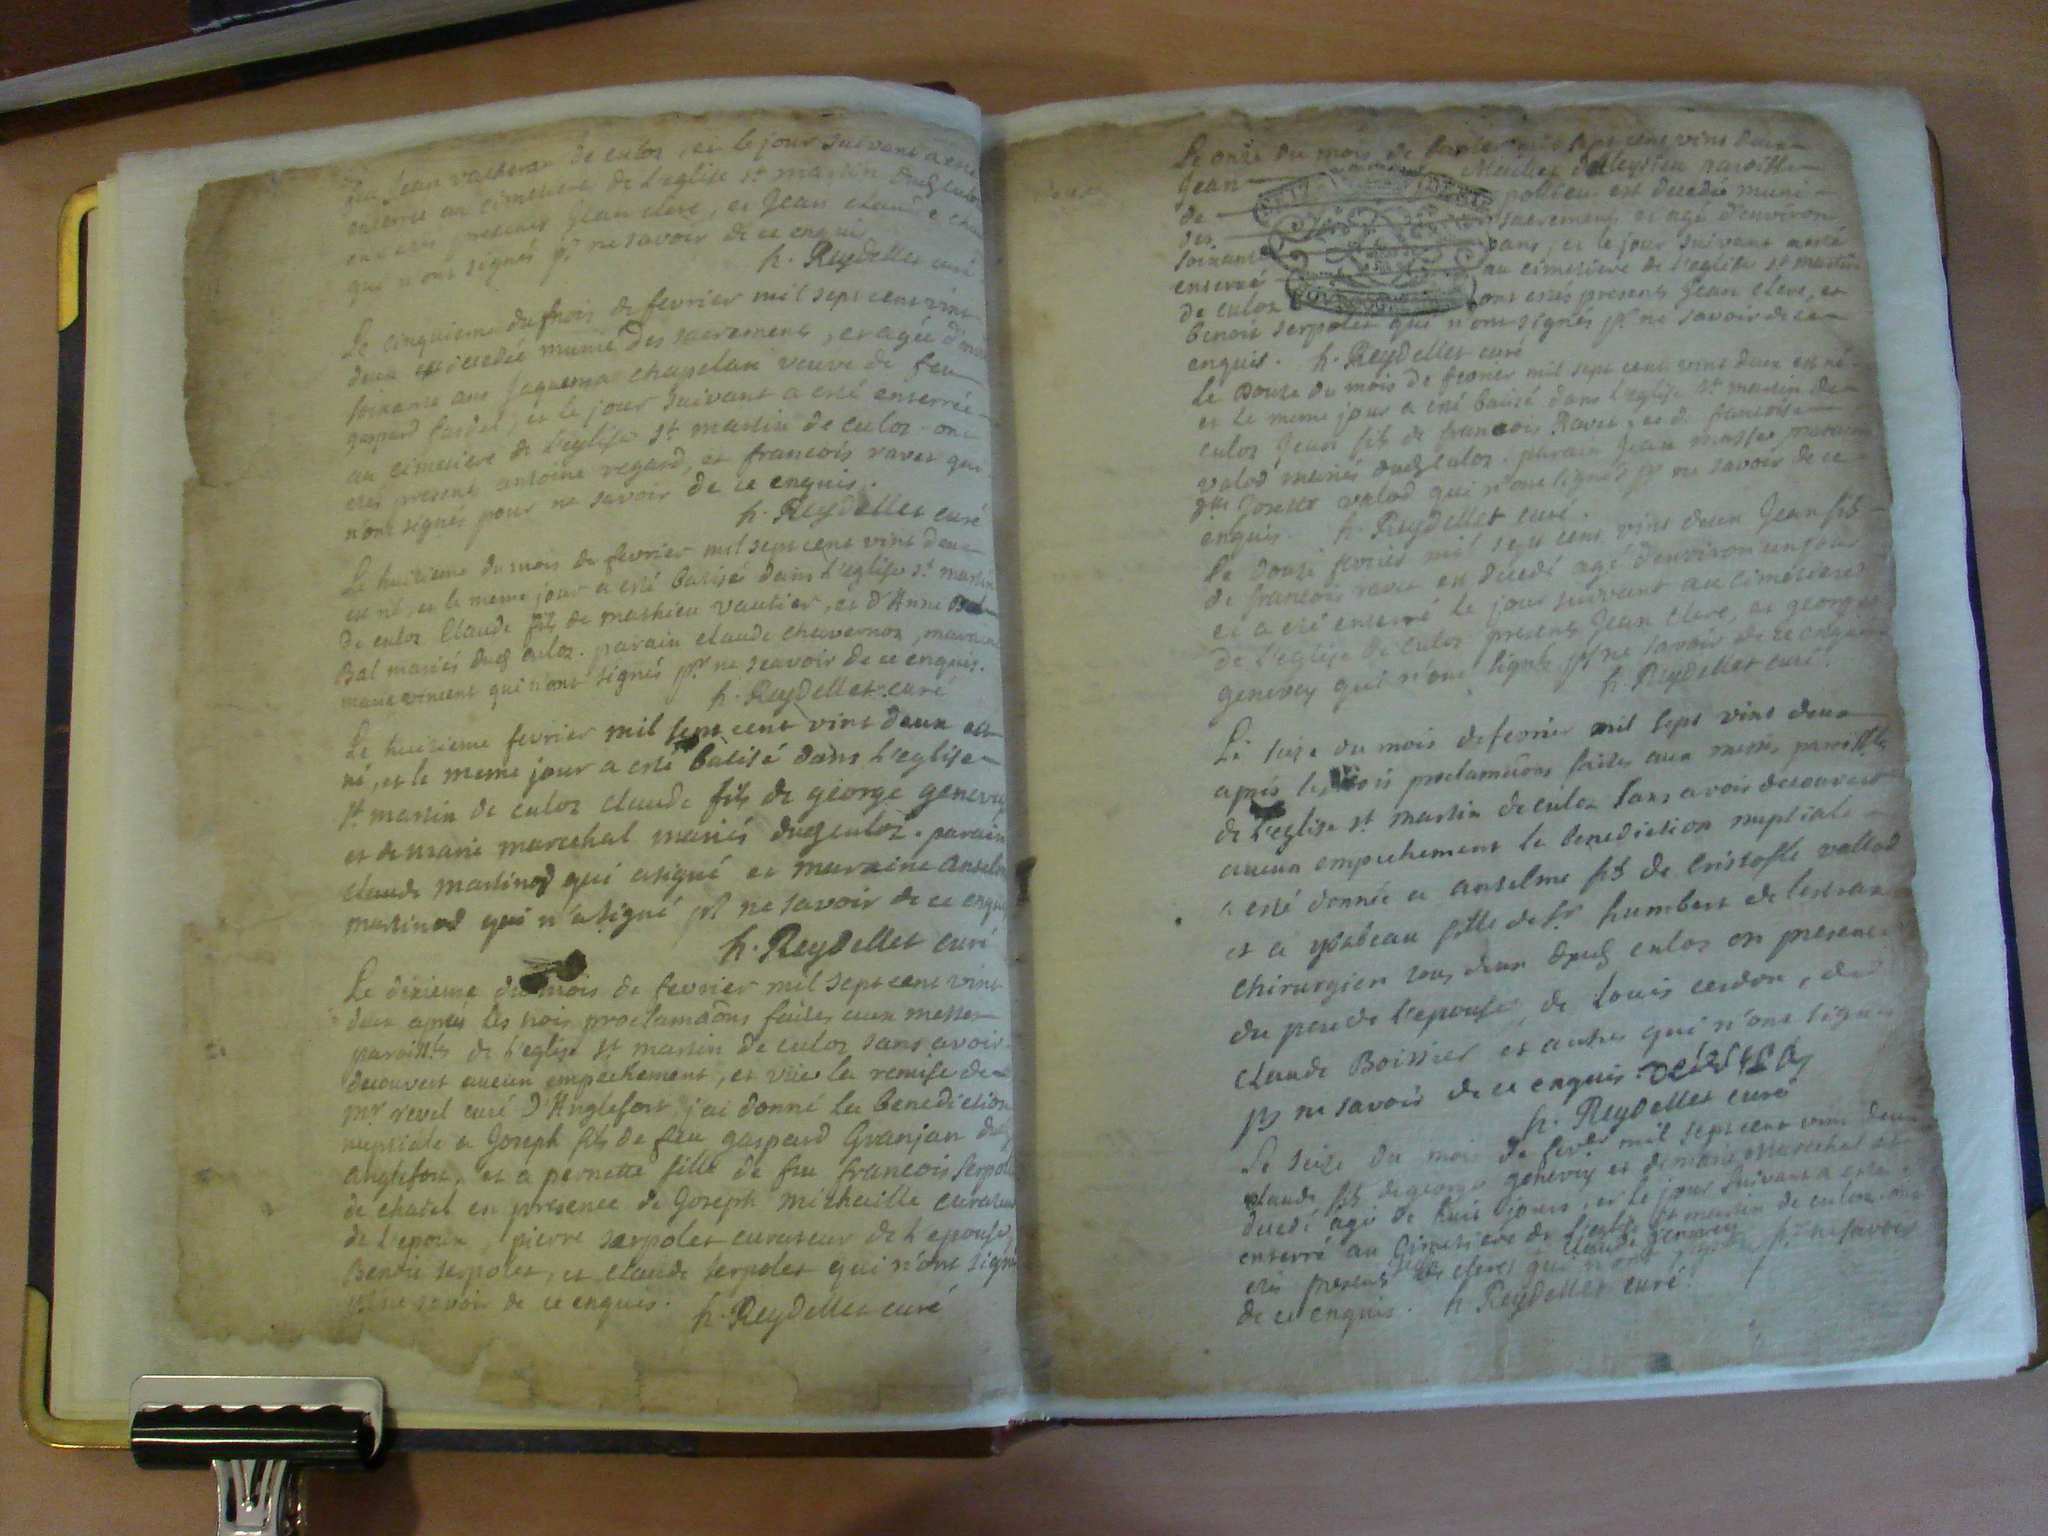 feu Jean vacheran de culoz, et le jour suivant a esté
enterré au cimetiere de l'eglise st martin dudt culoz
presents Jean clerc, et Jean claude
qui n'ont signés pr ne savoir de ce enquis
h. Reydellet curé
Le cinquieme du mois de fevrier mil sept cent vint
deux est decedée munie des sacrements, et agée d'en
soixante ans Jaquema chapelan veuve de feu
gaspard et le jour suivant a esté enterrée
au cimetiere de l'eglise st martin de culoz ont
estés presents antoine regard, et francois ravet qui
n'ont signés pour ne savoir de ce enquis.
h. Reydellet curé
Le huitieme du mois de fevrier mil sept cent vint deux
est né, et le meme jour a esté batisé dans l'eglise st martin
de culoz Claude fils de mathieu vautier, et d'Anne
Bal mariés dudt culoz. parain claude chavernoz, maraine
marie vincent qui n'ont signés pr ne scavoir de ce enquis.
h. Reydellet curé
Le huitieme fevrier mil sept cent vint deux est
né, et le meme jour a esté batisé dans l'eglise
st martin de culoz claude fils de george genevey
et de marie marechal mariés dudt culoz. parain
claude martinod qui a signé et maraine anselm
martinod qui n'a signé pr ne savoir de ce enquis
h. Reydellet curé
Le dixieme du mois de fevrier mil sept cent vint
deux aprés les trois proclamaons faites aux messes
paroissles de l'eglise st martin de culoz sans avoir
decouvert aucun empechement, et vüe la remise de
mr revel curé d'Anglefort, j'ai donné la benediction
nuptiale a Joseph fils de feu gaspard Granjan dud
anglefort, et a pernette fille de feu francois serpol
de chatel en presence de Joseph micheaille curateur
de l'epoux, pierre serpolet curateur de l'epouse,
Benoit serpolet, et claude serpolet qui n'ont signé
pr ne savoir de ce enquis.
h. Reydellet curé
Le onze du mois de fevrier mil sept cent vint deux
Jean d'Aleysieu paroisse
de pollieu est decedé muni
des sacrements et agé d'environ
soixante ans, et le jour suivant a esté
enterré au cimetiere de l'eglise st martin
de culoz ont estés presents Jean clerc, et
benoit serpolet qui n'ont signés pr ne savoir de ce
enquis. h. Reydellet curé
Le Douze du mois de fevrier mil sept cent vint deux est né
et le meme jour a esté batisé dans l'eglise st martin de
culoz Jean fils de francois Ravet, et d. francoise
valod mariés dudt culoz. parain Jean masse maraine
dlle Josette valod qui n'ont signés pr ne savoir de ce
enquis. h. Reydellet curé.
Le douze fevrier mil sept cent vint deux Jean fils
de francois ravet est decedé agé d'environ un jour
et a esté enterré le jour suivant au cimetiere
de l'eglise de culoz presents Jean clerc, et george
genevey qui n'ont signés pr ne savoir de ce enquis
h. Reydellet curé.
Le seize du mois de fevrier mil sept vint deux
aprés les trois proclamations faites aux messes paroissles
de l'eglise st martin de culoz sans avoir decouvert
aucun empechement la benediction nuptiale
a esté donnée a anselme fils de cristofle vallod
et a ysabeau fille de sr humbert de lestra
chirurgien tous deux dudt culoz en presence
du pere de l'epouse, de Louis cerdon, de
claude Boissier et autres qui n'ont signés
pr ne savoir de ce enquis.
h. Reydellet curé
Le seize du mois de fevrier mil sept cent vint deux
claude fils de george genevey et de marie Marechal est
decedé agé de huit jours, et le jour suivant a esté
enterré au Cimetiere de l'eglise st martin de culoz ont
estés presents clerc, claude genevey qui n'ont signés pr ne savoir
de ce enquis. h. Reydellet curé